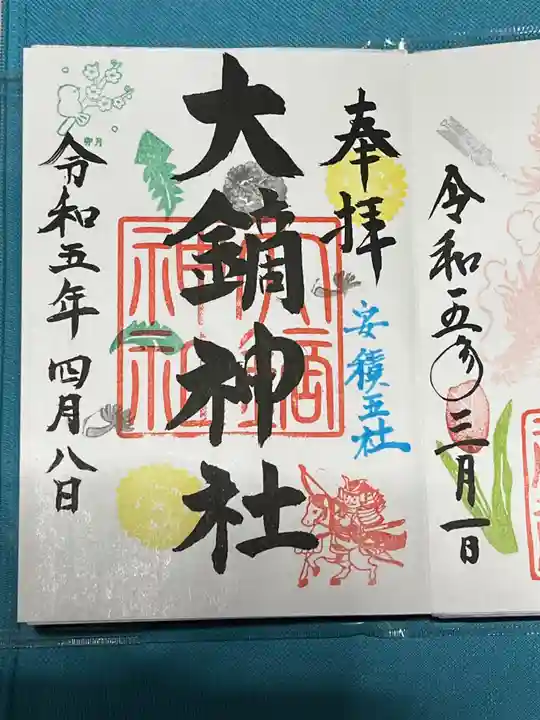 奉拝
安積五社
大鏑神社
大鏑神社
卯月
令和五年四月八日
令和五年三月一日